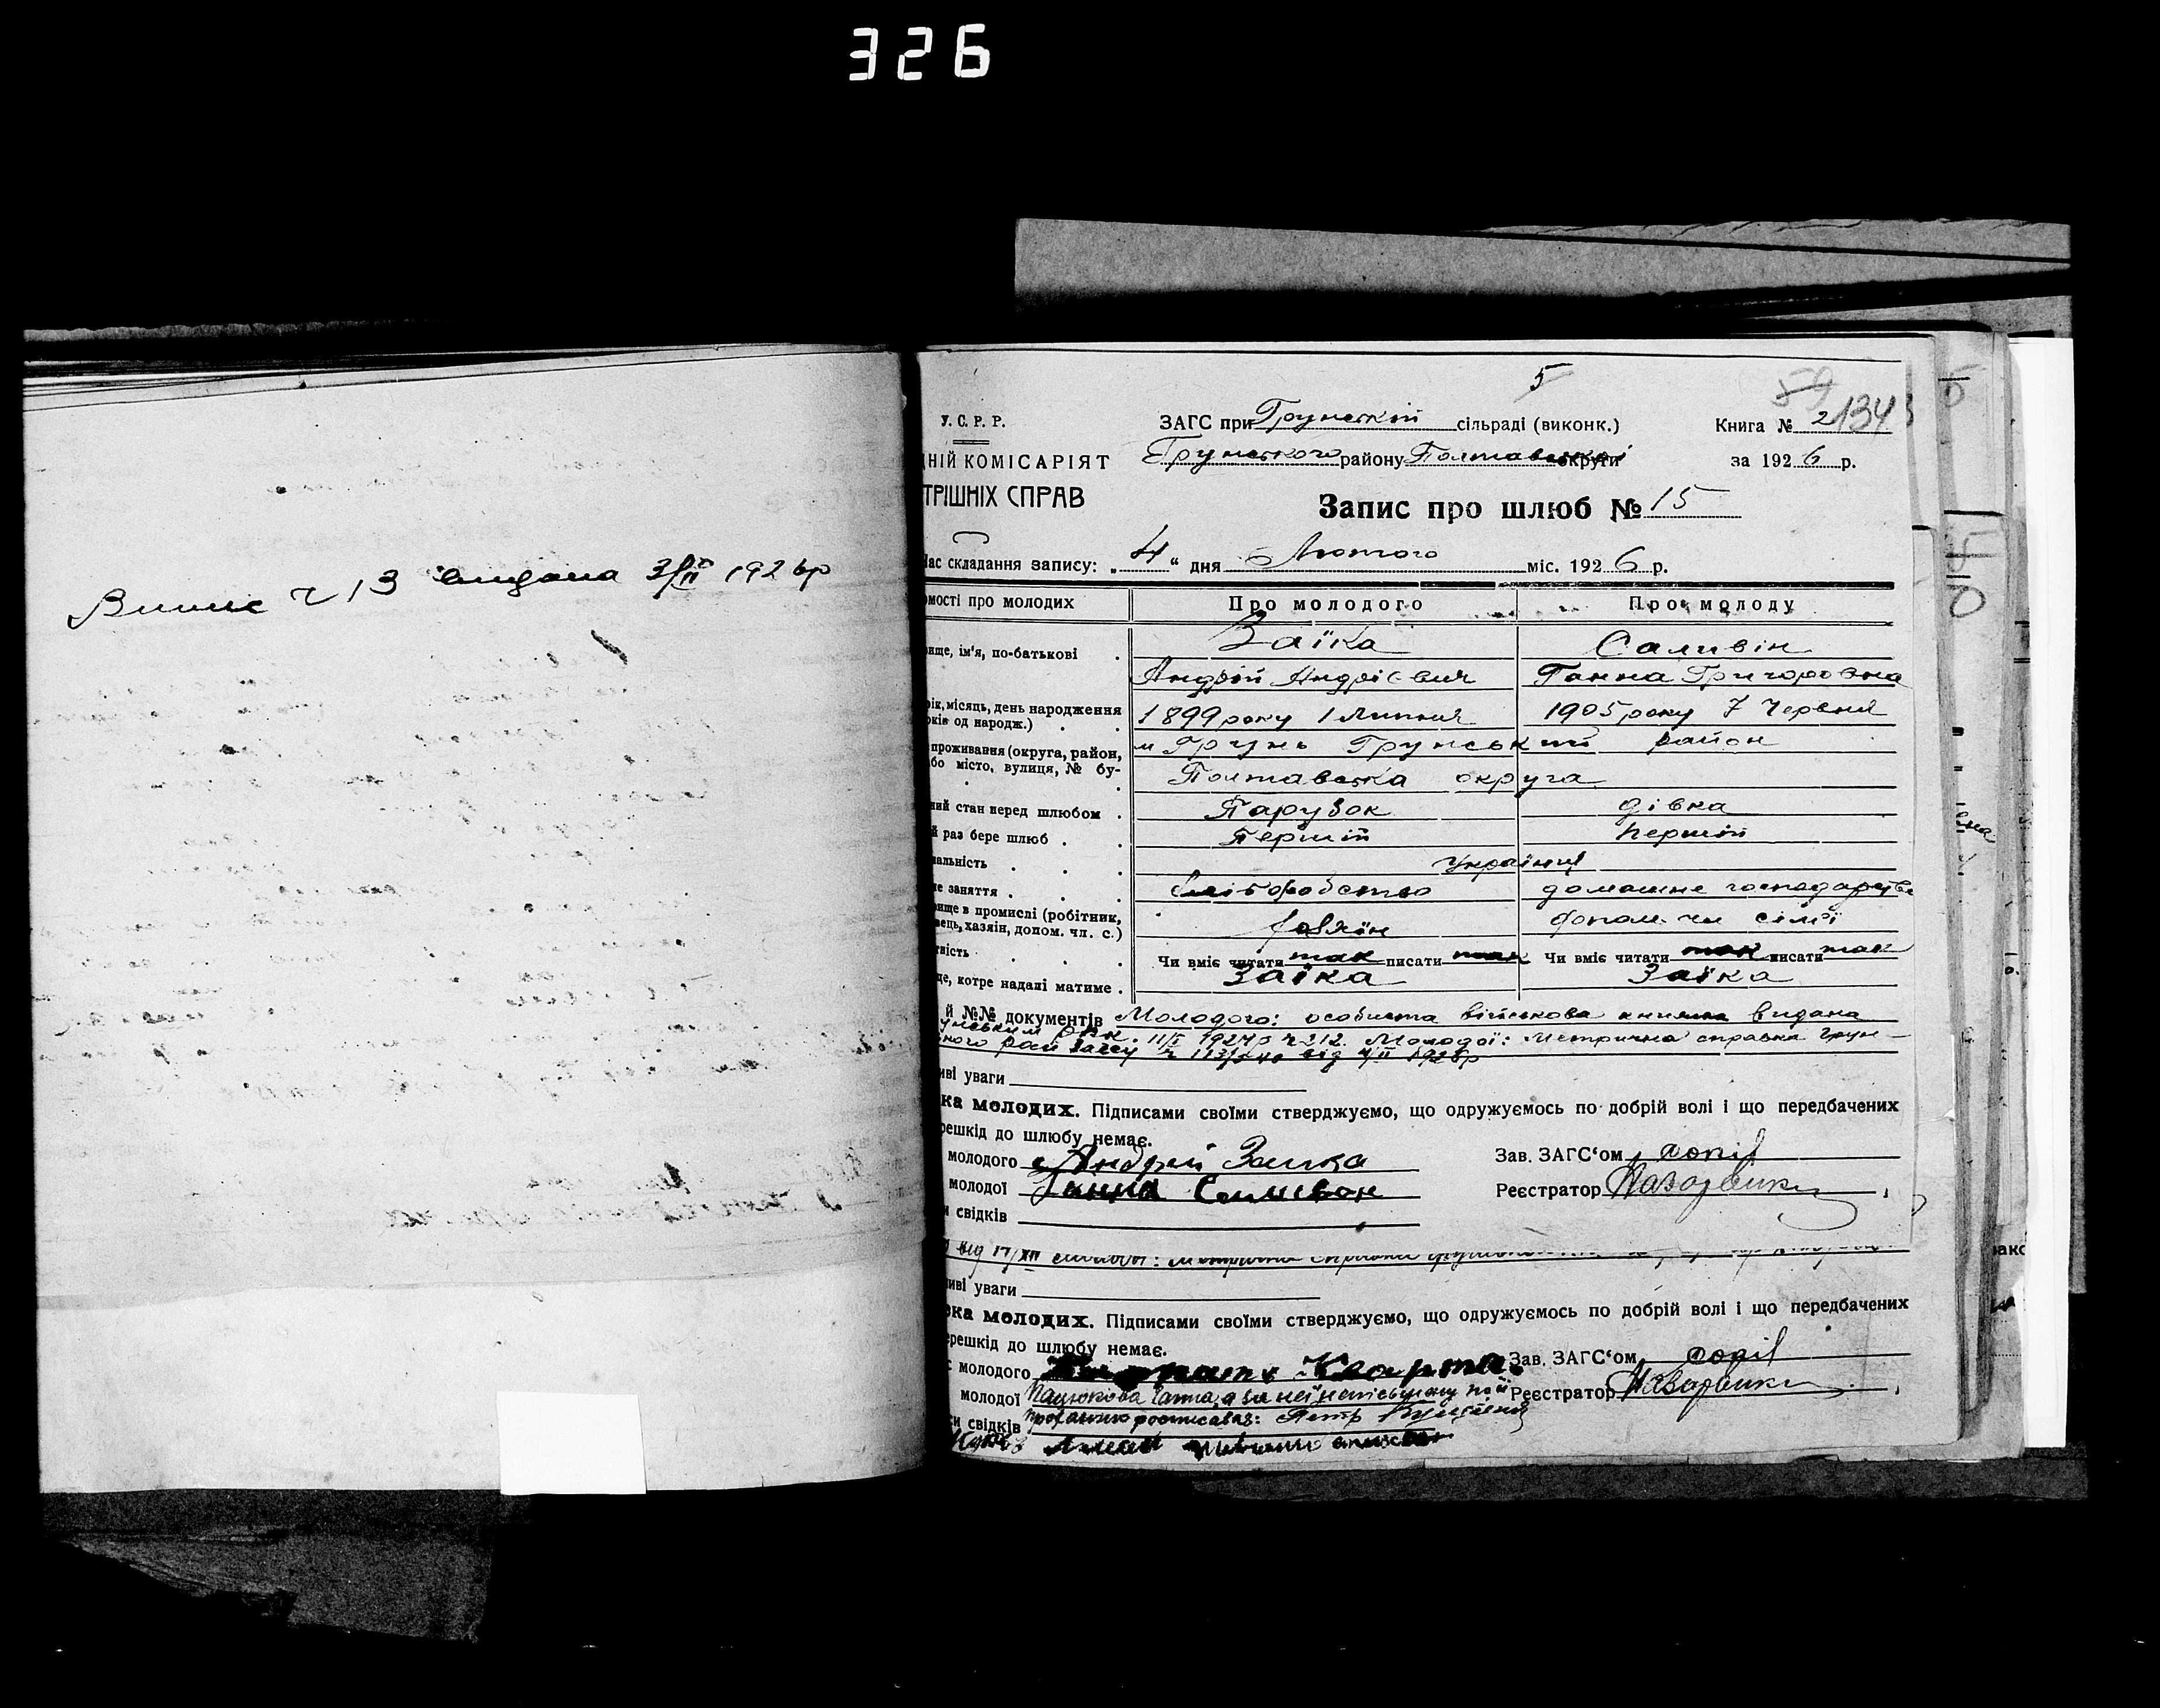 326
Випис ч 13 видана 3/II 1926р
5
59
134
У. С. Р. Р.
ЗАГС при Грунській сільраді (виконк.)
Книга № 2
ДНІЙ КОМІСАРІЯТ
Грунського району Полтавської округи
за 1926 р.
ТРІШНІХ СПРАВ
Запис про шлюб № 15
Час складання запису: „4“ дня Лютого міс. 1926 р.
омості про молодих
Про молодого
Про молоду
вище, ім'я, по-батькові
Заїка
Саливін
Андрій Андрієвич
Ганна Григоровна
рік, місяць, день народження
оків од народж.)
1899 року 1 Липня
1905 року 7 Червня
проживання (округа, район,
бо місто, вулиця, № бу-
м Грунь Грунський район
Полтавська округа
ний стан перед шлюбом
Парубок
дівка
й раз бере шлюб
Перший
перший
нальність
українці
не заняття
хліборобство
домашне господарство
вище в промислі (робітник,
вець, хазяїн, допом. чл. с.)
хазяїн
допом. чл сім'ї
тність
Чи вміє читати так писати так
Чи вміє читати так писати так
ще, котре надалі матиме
Заїка
Заїка
й №№ документів Молодого: особиста військова книжка видана
унським РВК. 11/I 1924р ч 212. Молодої: Метрична справка Грун-
ського рай Загсу від 4/II 1926р
иві уваги
ка молодих. Підписами своїми стверджуємо, що одружуємось по добрій волі і що передбачених
решкід до шлюбу немає.
молодого Андрій Заика
Зав. ЗАГС‘ом
молодої Ганна Саливон
Реєстратор
и свідків
від 17/XII молодої: Метрична справка
иві уваги
ка молодих. Підписами своїми стверджуємо, що одружуємось по добрій волі і що передбачених
ерешкід до шлюбу немає.
с молодого Кварта
Зав. ЗАГС‘ом
молодої Пацюкова Ганна, а за неї неписьменну по її
Реєстратор
си свідків проханню росписавсь: Петр